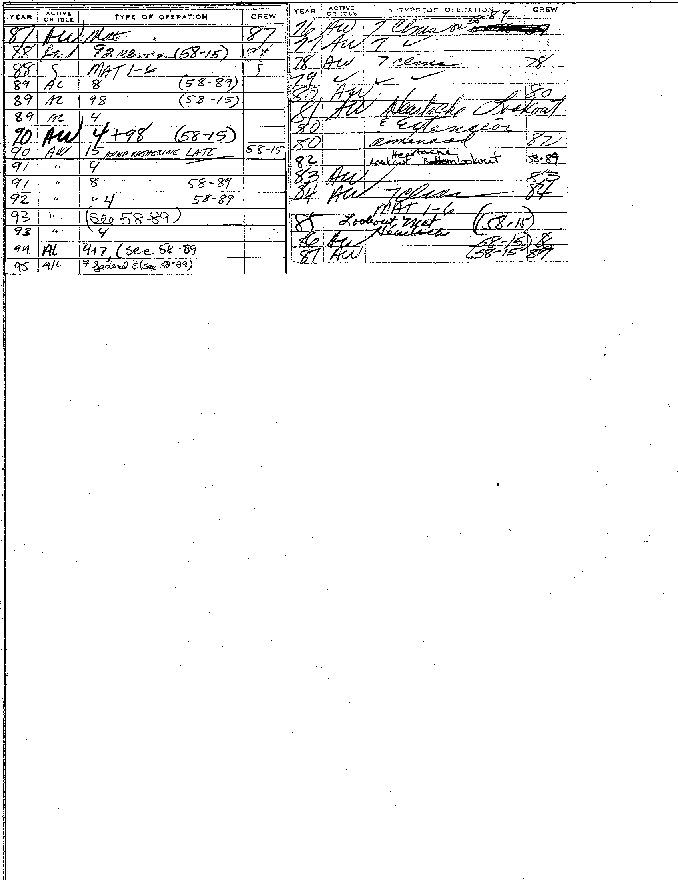 YEAR ACTIVE OR IDLE TYPE OF OPERATION CREW
87 AW 87
88 92 (58-15)
88 MAT 1-6
89 AL 8 (58-89)
89 AL 98 (58-15)
89 AL 4
90 AW 4+98 (58-15)
90 AW 15 ANNA KATHERINE LATE 58-15
91 " 4
91 " 8 58-89
92 " " 4 58-89
93 " (See 58-89)
93 " 4
94 AL 4+7 (See 58-89
95 A/L (See 58-89)
YEAR ACTIVE OR IDLE TYPE OF OPERATION CREW
76 AW 7 89
77 AW 7
78 AW 7 clms 78
79
AW 80
81 AW Heartache Lookout
80 & Extension
80 amended 82
82 Heartache
Lookout Bottom Lookout 58-89
83 AW 83
84 AW 7 84
MAT 1-6
85 Lookout Mat (58-15)
Heartache
86 AW (58-15) 8
87 AW (58-15 89